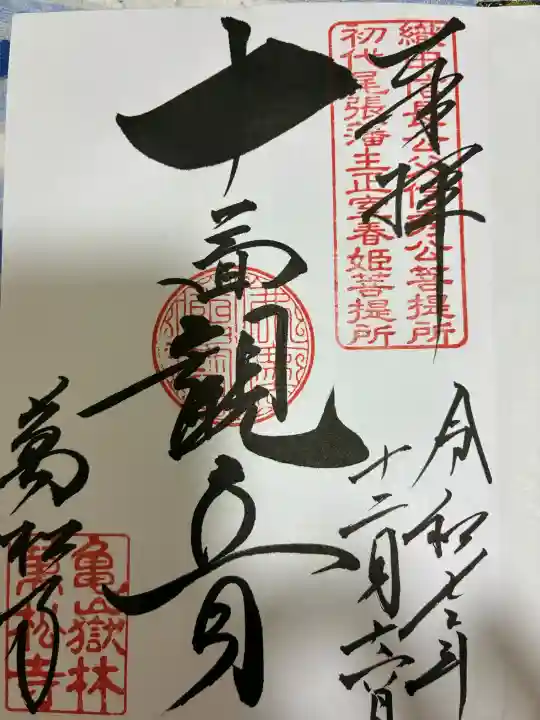 奉拝
織田信長公父信秀公菩提所
初代尾張藩主正室春姫菩提所
令和七年
十二月十六日
十一面観音
萬松寺
亀嶽林
萬松寺